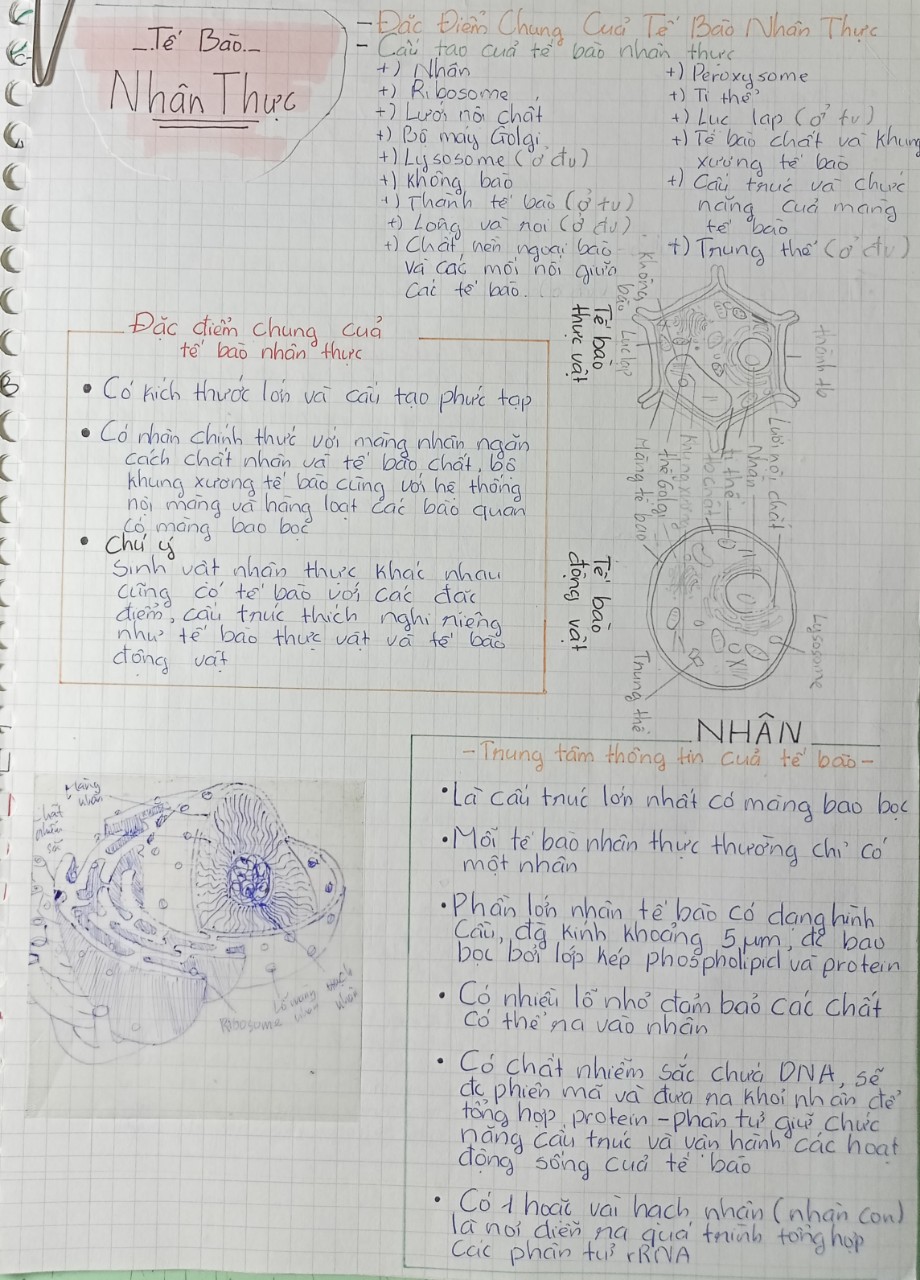 -Tế Bào-
Nhân Thực
- Đặc Điểm Chung Cuả Tế Bào Nhân Thực
- Cấu tạo cuả tế bào nhân thực
+) Nhân
+) Ribosome
+) Lưới nội chất
+) Bộ máy Golgi
+) Lysosome (ở đv)
+) Không bào
+) Thành tế bào (ở tv)
+) Lông và roi (ở đv)
+) Chất nền ngoại bào
và các mối nối giữa
các tế bào.
+) Peroxysome
+) Ti thể
+) Lục lạp (ở tv)
+) Tế bào chất và khung
xương tế bào
+) Cấu trúc và chức
năng cuả màng
tế bào
+) Trung thể (ở đv)
Đặc điểm chung cuả
tế bào nhân thực
• Có kích thước lớn và cấu tạo phức tạp
• Có nhân chính thức với màng nhân ngăn
cách chất nhân và tế bào chất, bộ
khung xương tế bào cùng với hệ thống
nội màng và hàng loạt các bào quan
có màng bao bọc
• Chú ý
Sinh vật nhân thực khác nhau
cũng có tế bào với các đặc
điểm, cấu trúc thích nghi riêng
như tế bào thực vật và tế bào
động vật
Tế bào
thực vật
Không
bào
Lục lạp
Màng tế bào
Khung xương
thể Golgi
tb chất
ti thể
Nhân
Lưới nội chất
thành tb
Tế bào
động vật
Trung thể
Lysosome
NHÂN
- Trung tâm thông tin cuả tế bào -
• Là cấu trúc lớn nhất có màng bao bọc
• Mỗi tế bào nhân thực thường chỉ có
một nhân
• Phần lớn nhân tế bào có dạng hình
cầu, đg kính khoảng 5 μm, đc bao
bọc bởi lớp kép phospholipid và protein
• Có nhiều lỗ nhỏ đảm bảo các chất
có thể ra vào nhân
• Có chất nhiễm sắc chưá DNA, sẽ
đc phiên mã và đưa ra khỏi nhân để
tổng hợp protein - phân tử giữ chức
năng cấu trúc và vận hành các hoạt
động sống cuả tế bào
• Có 1 hoặc vài hạch nhân (nhân con)
là nơi diễn ra quá trình tổng hợp
các phân tử rRNA
Màng
nhân
chất
nhiễm
sắc
Ribosome
Lỗ màng
nhân
Hạch
nhân